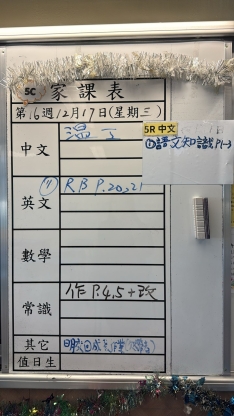 5C 家課表
第16週12月17日(星期三)
中文 温工
5R 中文
①語文知識P1-3
英文 (1) R B P.20,21
數學
常識 作 P.4,5 + 改
其它
值日生